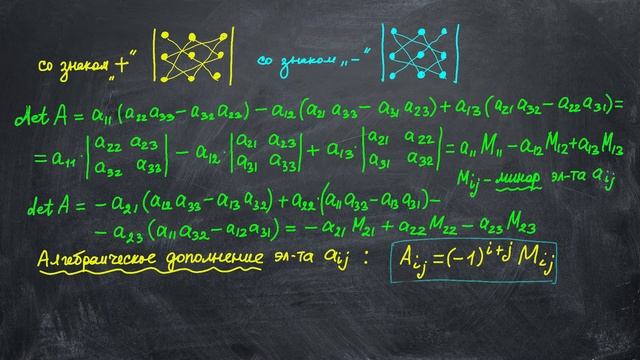 со знаком „+“ со знаком „−“
det A = a₁₁(a₂₂a₃₃ − a₃₂a₂₂) − a₁₂(a₂₁ a₃₃ − a₃₁ a₂₃) + a₁₃(a₂₁a₃₂ − a₂₂a₃₁) =
= a₁₁ · |a₂₂ a₂₃; a₃₂ a₃₃| − a₁₂ · |a₂₁ a₂₃; a₃₁ a₃₃| + a₁₃ · |a₂₁ a₂₂; a₃₁ a₃₂| = a₁₁ M₁₁ − a₁₂M₁₂ + a₁₃ M₁₃
Mᵢⱼ – минор эл-та aᵢⱼ
det A = − a₂₁(a₁₂ a₃₃ − a₁₃ a₃₂) + a₂₂·(a₁₁a₃₃ − a₁₃a₃₁) −
− a₂₃(a₁₁a₃₂ − a₁₂a₃₁) = − a₂₁ M₂₁ + a₂₂ M₂₂ − a₂₃ M₂₃
Алгебраическое дополнение эл-та aᵢⱼ : Aᵢⱼ = (−1)ⁱ⁺ʲ Mᵢⱼ